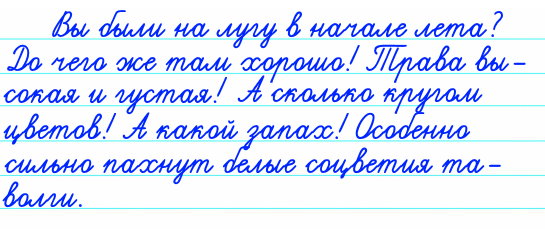 Вы были на лугу в начале лета?
До чего же там хорошо! Трава вы-
сокая и густая! А сколько кругом
цветов! А какой запах! Особенно
сильно пахнут белые соцветия та-
волги.